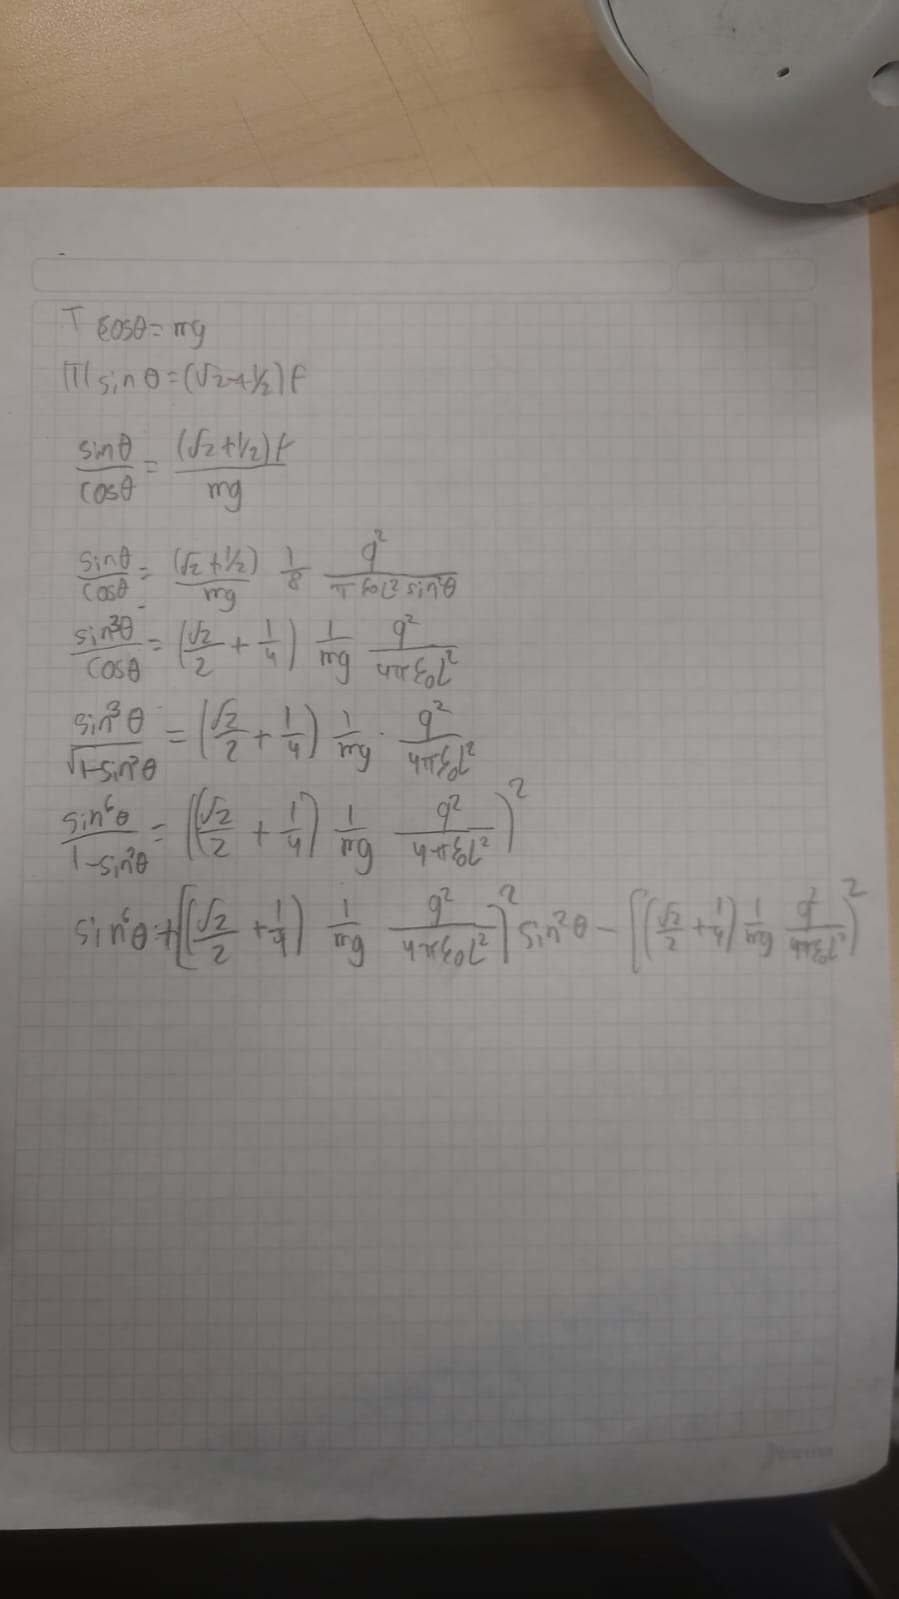 T cosθ = mg
|T| sin θ = (√2 + 1/2) F
sinθ/cosθ = (√2 + 1/2) F / mg
sinθ/cosθ = (√2 + 1/2)/mg 1/8 q²/(π ε₀ L² sin²θ)
sin³θ/cosθ = (√2/2 + 1/4) 1/mg q²/(4πε₀L²)
sin³θ/√(1-sin²θ) = (√2/2 + 1/4) 1/mg · q²/(4πε₀L²)
sin⁶θ/(1-sin²θ) = ((√2/2 + 1/4) 1/mg q²/(4πε₀L²))²
sin⁶θ + [(√2/2 + 1/4) 1/mg q²/(4πε₀L²)]² sin²θ - [(√2/2 + 1/4) 1/mg q²/(4πε₀L²))²